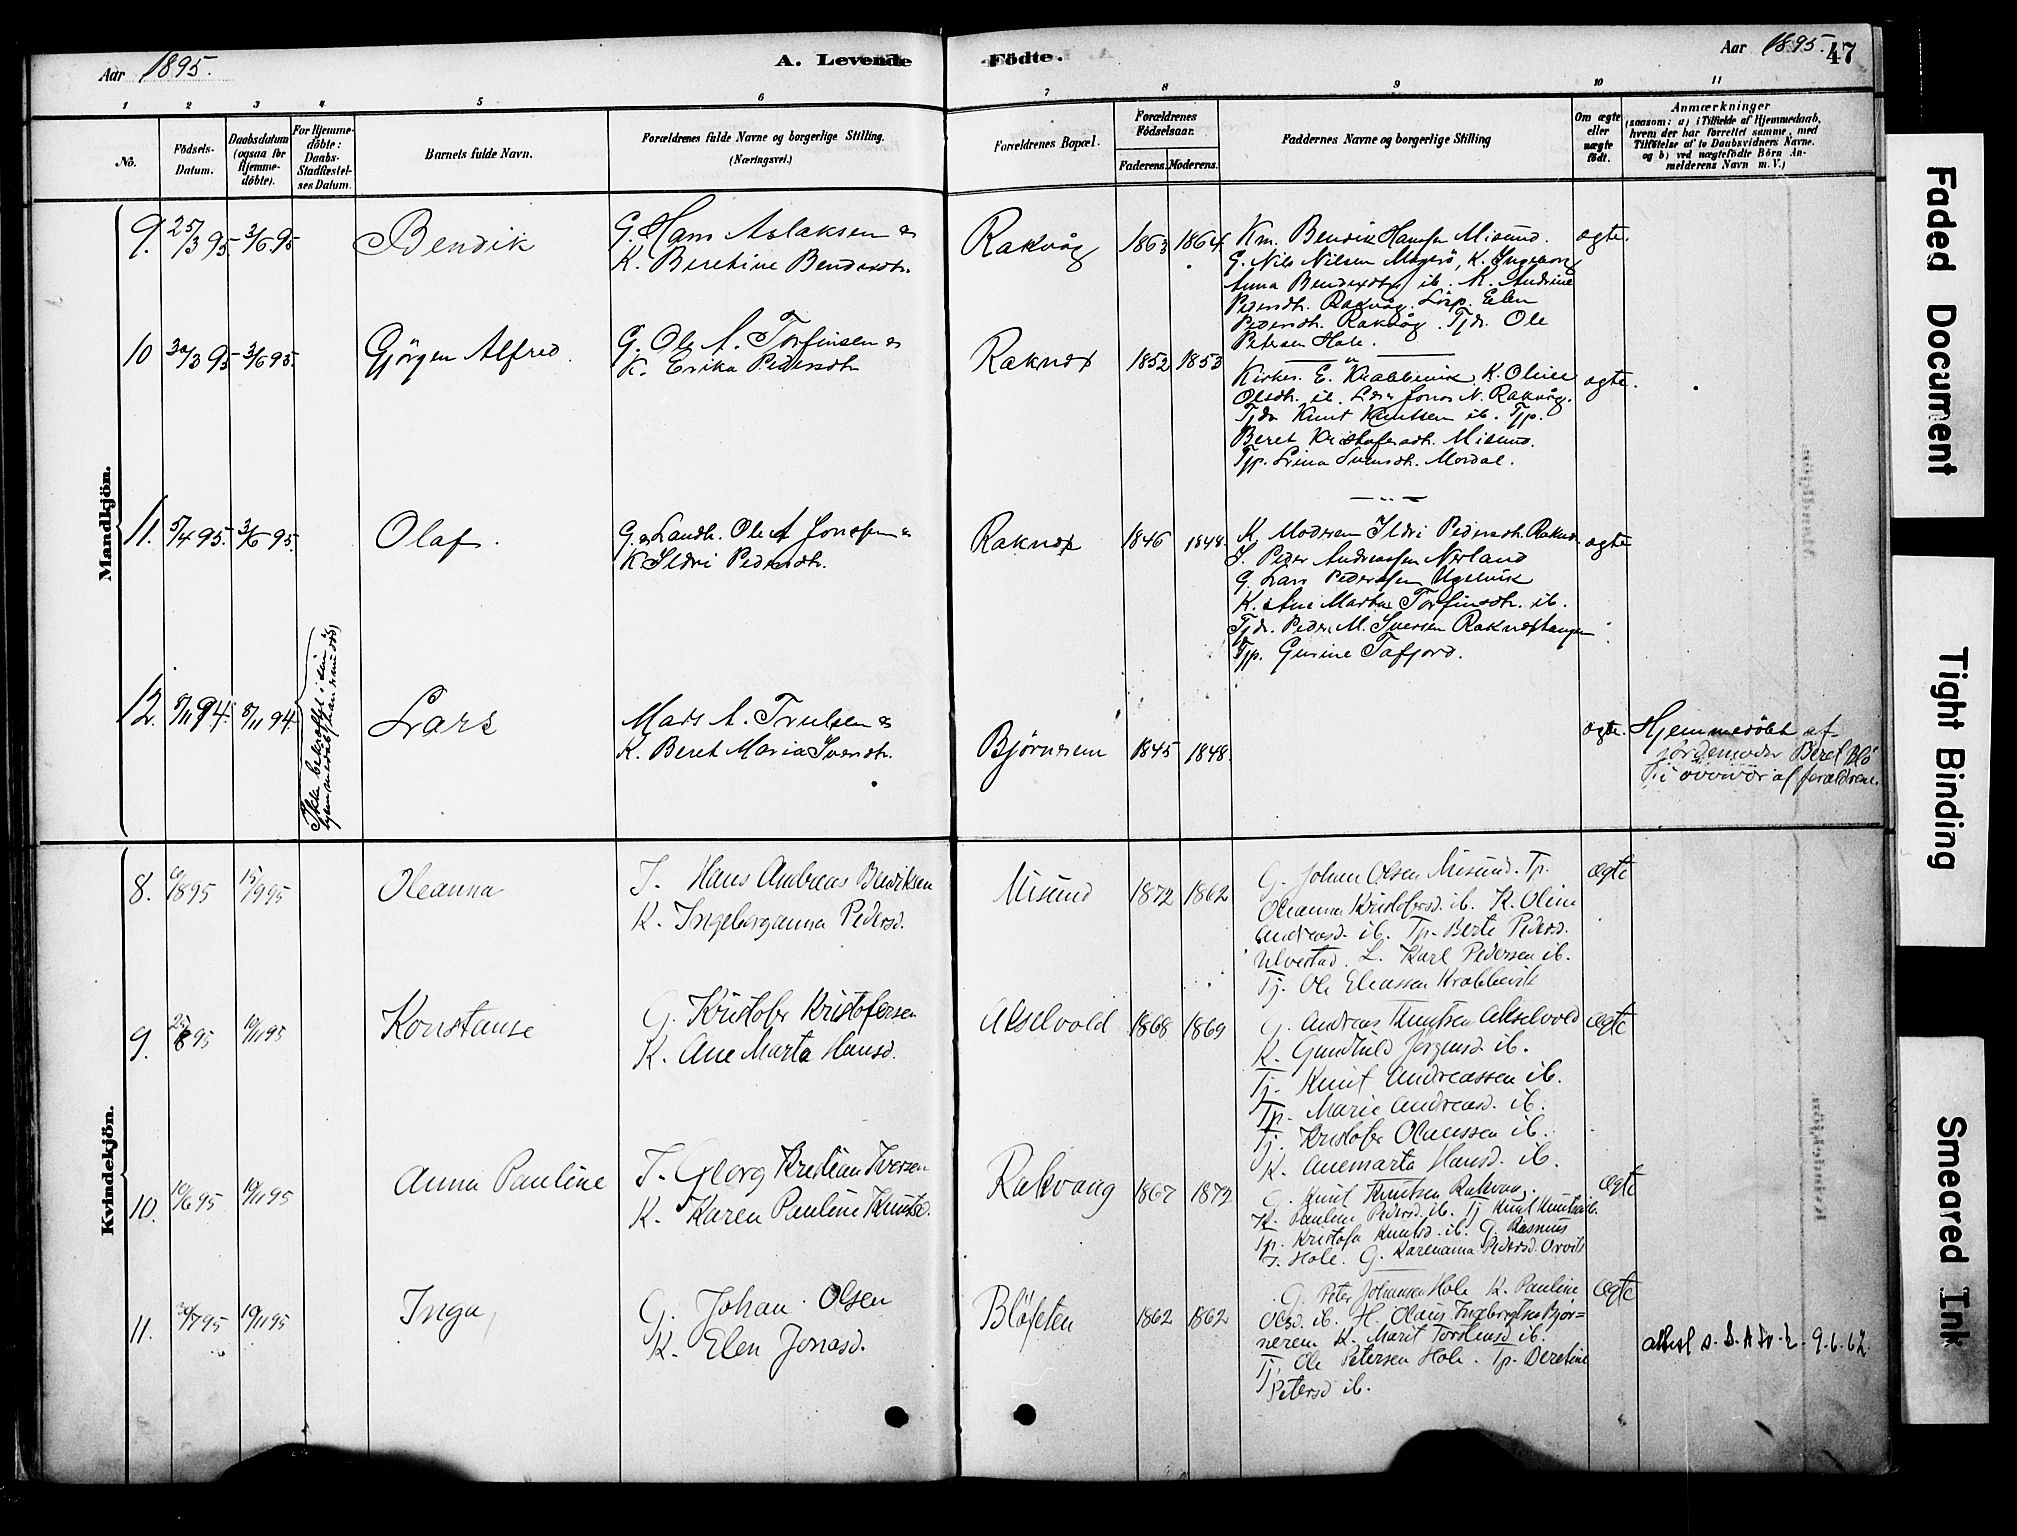 Aar 1895.
A. Levende Fødte.
Aar 1895.
47
1 2 3 4 5 6 7 8 9 10 11
No.
Fødsels-Datum.
Daabsdatum (ogsaa for Hjemme-døbte).
For Hjemme-døbte: Daabs-Stadfæstel-ses Datum.
Barnets fulde Navn.
Forældrenes fulde Navne og borgerlige Stilling.
(Næringsvei.)
Forældrenes Bopæl.
Forældrenes Fødselsaar.
Faderens. Moderens.
Faddernes Navne og borgerlige Stilling
Om ægte eller uægte født.
Anmærkninger
(saasom: a) i Tilfælde af Hjemmedaab,
hvem der har forrettet samme, med
Tilføielse af to Daabsvidners Navne.
og b) ved uægtefødte Børn An-
melderens Navn m. V.)
Mandkjön.
9. 25/3 95. 3/6 95
Bendik
G. Hans Aslaksen &
K. Beretine Bendixdtr.
Rakvåg 1863 1864
Km. Bendik Hansen Misund.
G. Nils Nilsen Magerö, K. Ingeborg
Anna Bendixdtr ib. K. Andrine
Pedersdtr. Rakvåg. Elen
Pedersdtr. Rakvåg. Tjdr. Ole
Petersen Hole.
ægte.
10 30/3 95 3/6 95.
Gjörgen Alfred.
G. Ole A. Torfinsen &
K. Erika Pedersdtr
Raknes 1852 1853
Kirkes. E. Krabbevik K. Oline
Olsdtr. ib. Jonas N. Rakvåg.
Tjdr Knut Knutsen ib. Tjp.
Beret Kristofersdtr. Misund.
Tjp. Lina Svensdtr. Mordal.
ægte.
11. 5/4 95. 3/6 95.
Olaf.
G. & Landh. Ole A Jonsen &
K Ildri Pedersdtr.
Raknes 1846 1848.
K. Moderen Ildri Pedersdtr. Raknes.
Peder Andreassen Nerland
G. Lars Pedersen Ugelvik
K. Ane Marta Torfinsdtr. ib.
Tjdr. Peder M. Iversen Raknestangen
Tjp. Gurine Tafjord.
ægte
12. 8/11 94. 8/11 94.
Ikke bekræftet i sin
hjemmedåb (han er nu död)
Lars
Mads A. Trulsen &
K. Beret Maria Iversdtr.
Björnerem 1845 1848.
ægte.
Hjemmedöbt af
jordemoder Beret Blö
i overvær af forældrene.
Kvindekjön.
8. 6/8 95 15/9 95
Oleanna
I. Hans Andreas Bendiksen
K. Ingeborganna Pedersd.
Misund 1872 1862
G. Johan Olsen Misund. Tp.
Oleanna Kristofersd. ib. K. Oline
Andreasd. ib. Tp. Berte Pedersd.
Ulvestad. L. Karl Pedersen ib.
Tj. Ole Eliassen Krabbevik
ægte
9. 25/8 95 10/11 95
Konstanse
G. Kristofer Kristofersen
K. Ane Marta Hansd.
Akselvold 1868 1869
G. Andreas Knutsen Akselvold
K. Gundhild Jørgensd. ib.
Tj. Knut Andreassen ib.
Tp. Marie Andreasd. ib.
Tj. Kristofer Olaussen ib.
K. Anemarta Hansd. ib.
ægte
10. 10/6 95 10/11 95
Anna Pauline
I. Georg Kristian Iversen
K. Karen Pauline Knutsd.
Rakvaag 1867 1872
G. Knut Knutsen Rakvaag.
K. Pauline Pedersd. ib. Tj Knut Knutsen ib.
Tp. Kristofa Knutsd. ib. G. Rasmus
Hole. G. Karenanna Pedersd. Orvik
ægte
11. 30/7 95 10/11 95
Inga
G. Johan Olsen
K. Elen Jonasd.
Blöseten 1862 1862
G. Peter Johansen Hole K. Pauline
Olsd. ib. H. Olaus Ingebrigtsen Björ-
nerem K. Marit Torstensd. ib.
Tj. Ole Petersen Hole. Tp. Beretine
Petersd ib.
ægte
9.6.62
Faded Document
Tight Binding
Smeared Ink